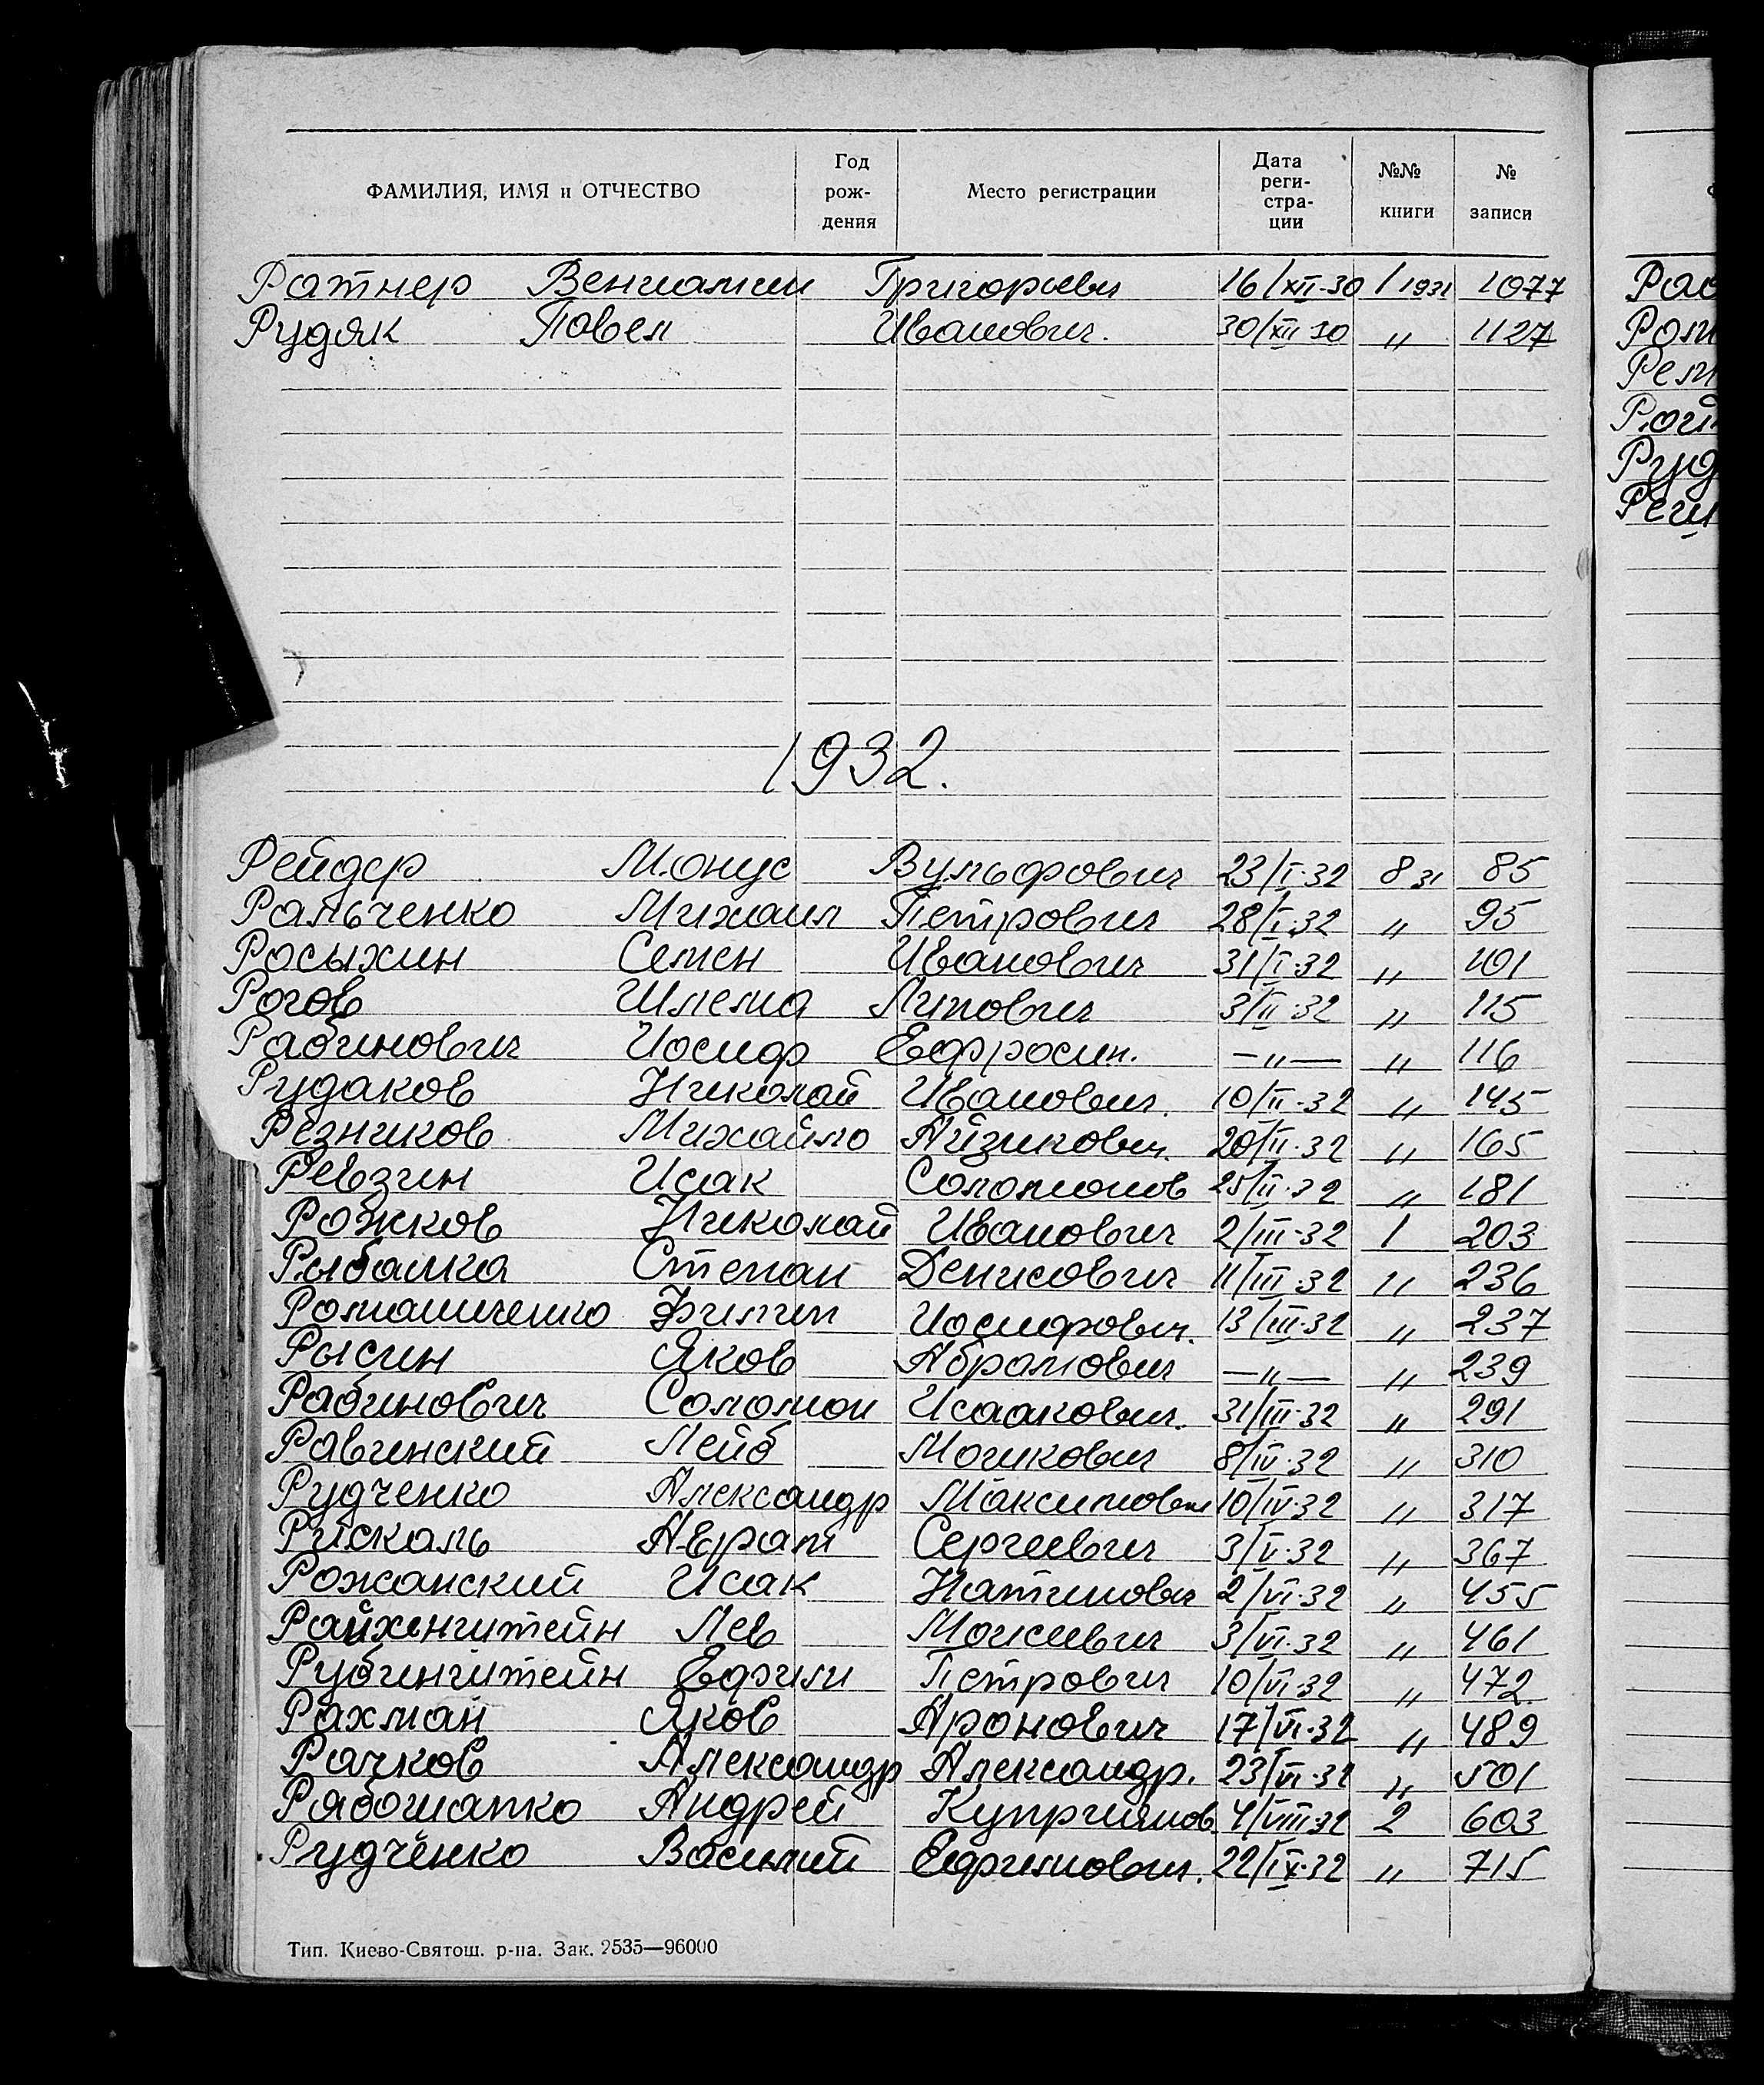 ФАМИЛИЯ, ИМЯ и ОТЧЕСТВО Год рож-дения Место регистрации Дата реги-стра-ции №№ книги № записи
Ратнер Вениамин Григорьевич 16/XII-30 1 1931 1077
Рудяк Павел Иванович. 30/XII 30 " 1127
1932.
Рейдер Монус Вульфович 23/I-32 8 31 85
Ральченко Михаил Петрович 28/I-32 " 95
Росыхин Семен Иванович 31/I-32 " 101
Рогов Шлема Липович 3/II-32 " 115
Рабинович Иосиф Ефросин. —"— " 116
Рудаков Николай Иванович. 10/II-32 " 145
Резников Михайло Айзикович. 20/II-32 " 165
Ревзин Исак Соломонов 25/II-32 " 181
Рожков Николай Иванович 2/III-32 1 203
Рыбалка Степан Денисович 11/III-32 " 236
Ромашченко Филип Иосифович. 13/III-32 " 237
Рысин Яков Абрамович —"— " 239
Рабинович Соломон Исаакович. 31/III-32 " 291
Равинский Лейб Мошкович 8/IV-32 " 310
Рудченко Александр Максимович 10/IV-32 " 317
Рискаль Сергеевич 3/V-32 " 367
Рожанский Исак Натанович 2/VI-32 " 455
Райхенштейн Лев Моисеевич 3/VI-32 " 461
Рубинштейн Ефим Петрович 10/VI-32 " 472
Рахман Яков Аронович 17/VI-32 " 489
Рачков Александр Александр. 23/VI-32 " 501
Рябошапко Андрей Куприянов. 4/VIII-32 2 603
Рудченко Василий Ефимович. 22/IX-32 " 715
Тип. Киево-Святош. р-на. Зак. 2535—96000